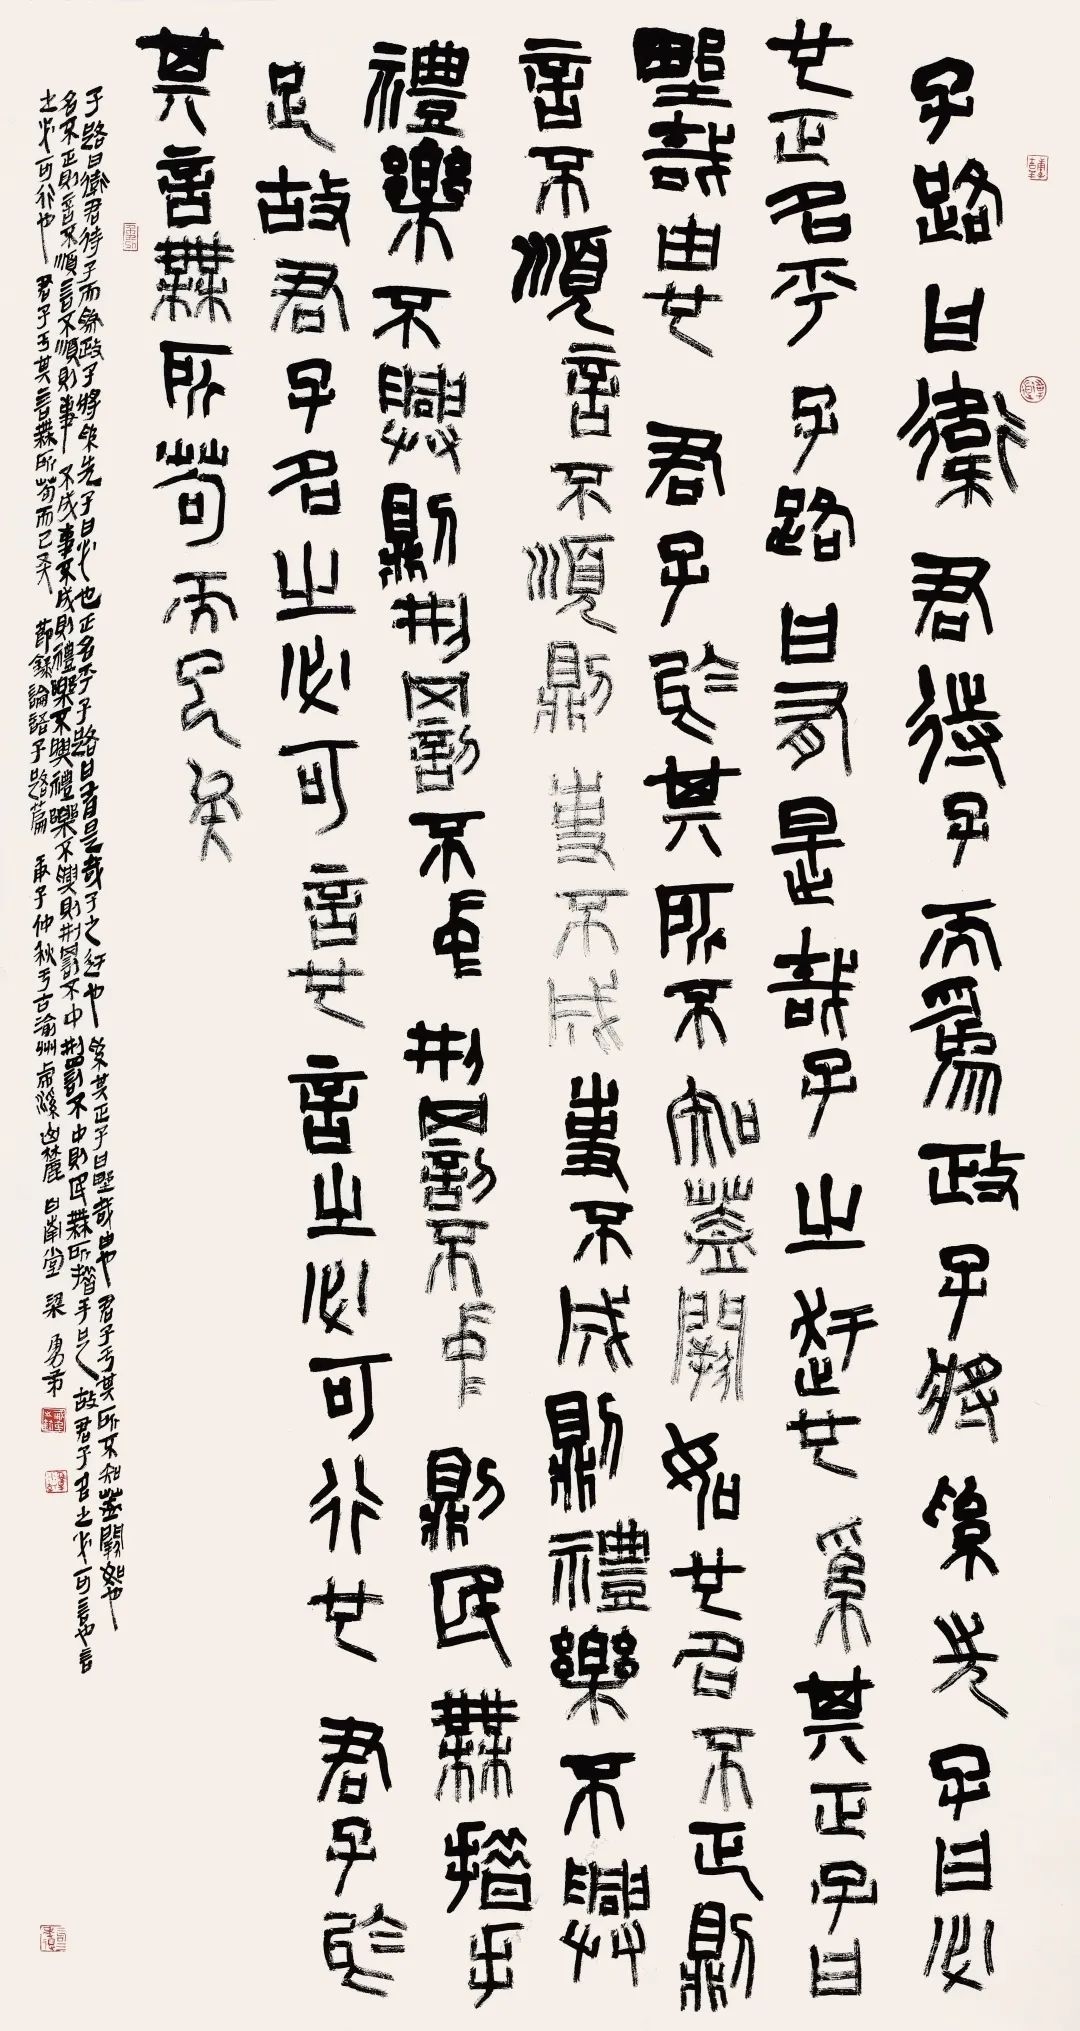 子路曰衛君待子而為政子將奚先子曰必
也正名乎 子路曰有是哉子之迂也奚其正子曰
野哉由也 君子於其所不知蓋闕如也名不正則
言不順言不順則事不成事不成則禮樂不興
禮樂不興則刑罰不中 刑罰不中 則民無措手
足故君子名之必可言也言之必可行也 君子於
其言無所苟而已矣
子路曰衛君待子而為政子將奚先子曰必也正名乎子路曰有是哉子之迂也奚其正子曰野哉由也君子于其所不知蓋闕如也
名不正則言不順言不順則事不成事不成則禮樂不興禮樂不興則刑罰不中刑罰不中則民無所措手足故君子名之必可言也言
之必可行也 君子于其言無所苟而已矣 節錄論語子路篇 庚子仲秋于古渝州虎溪山麓 南堂 梁勇